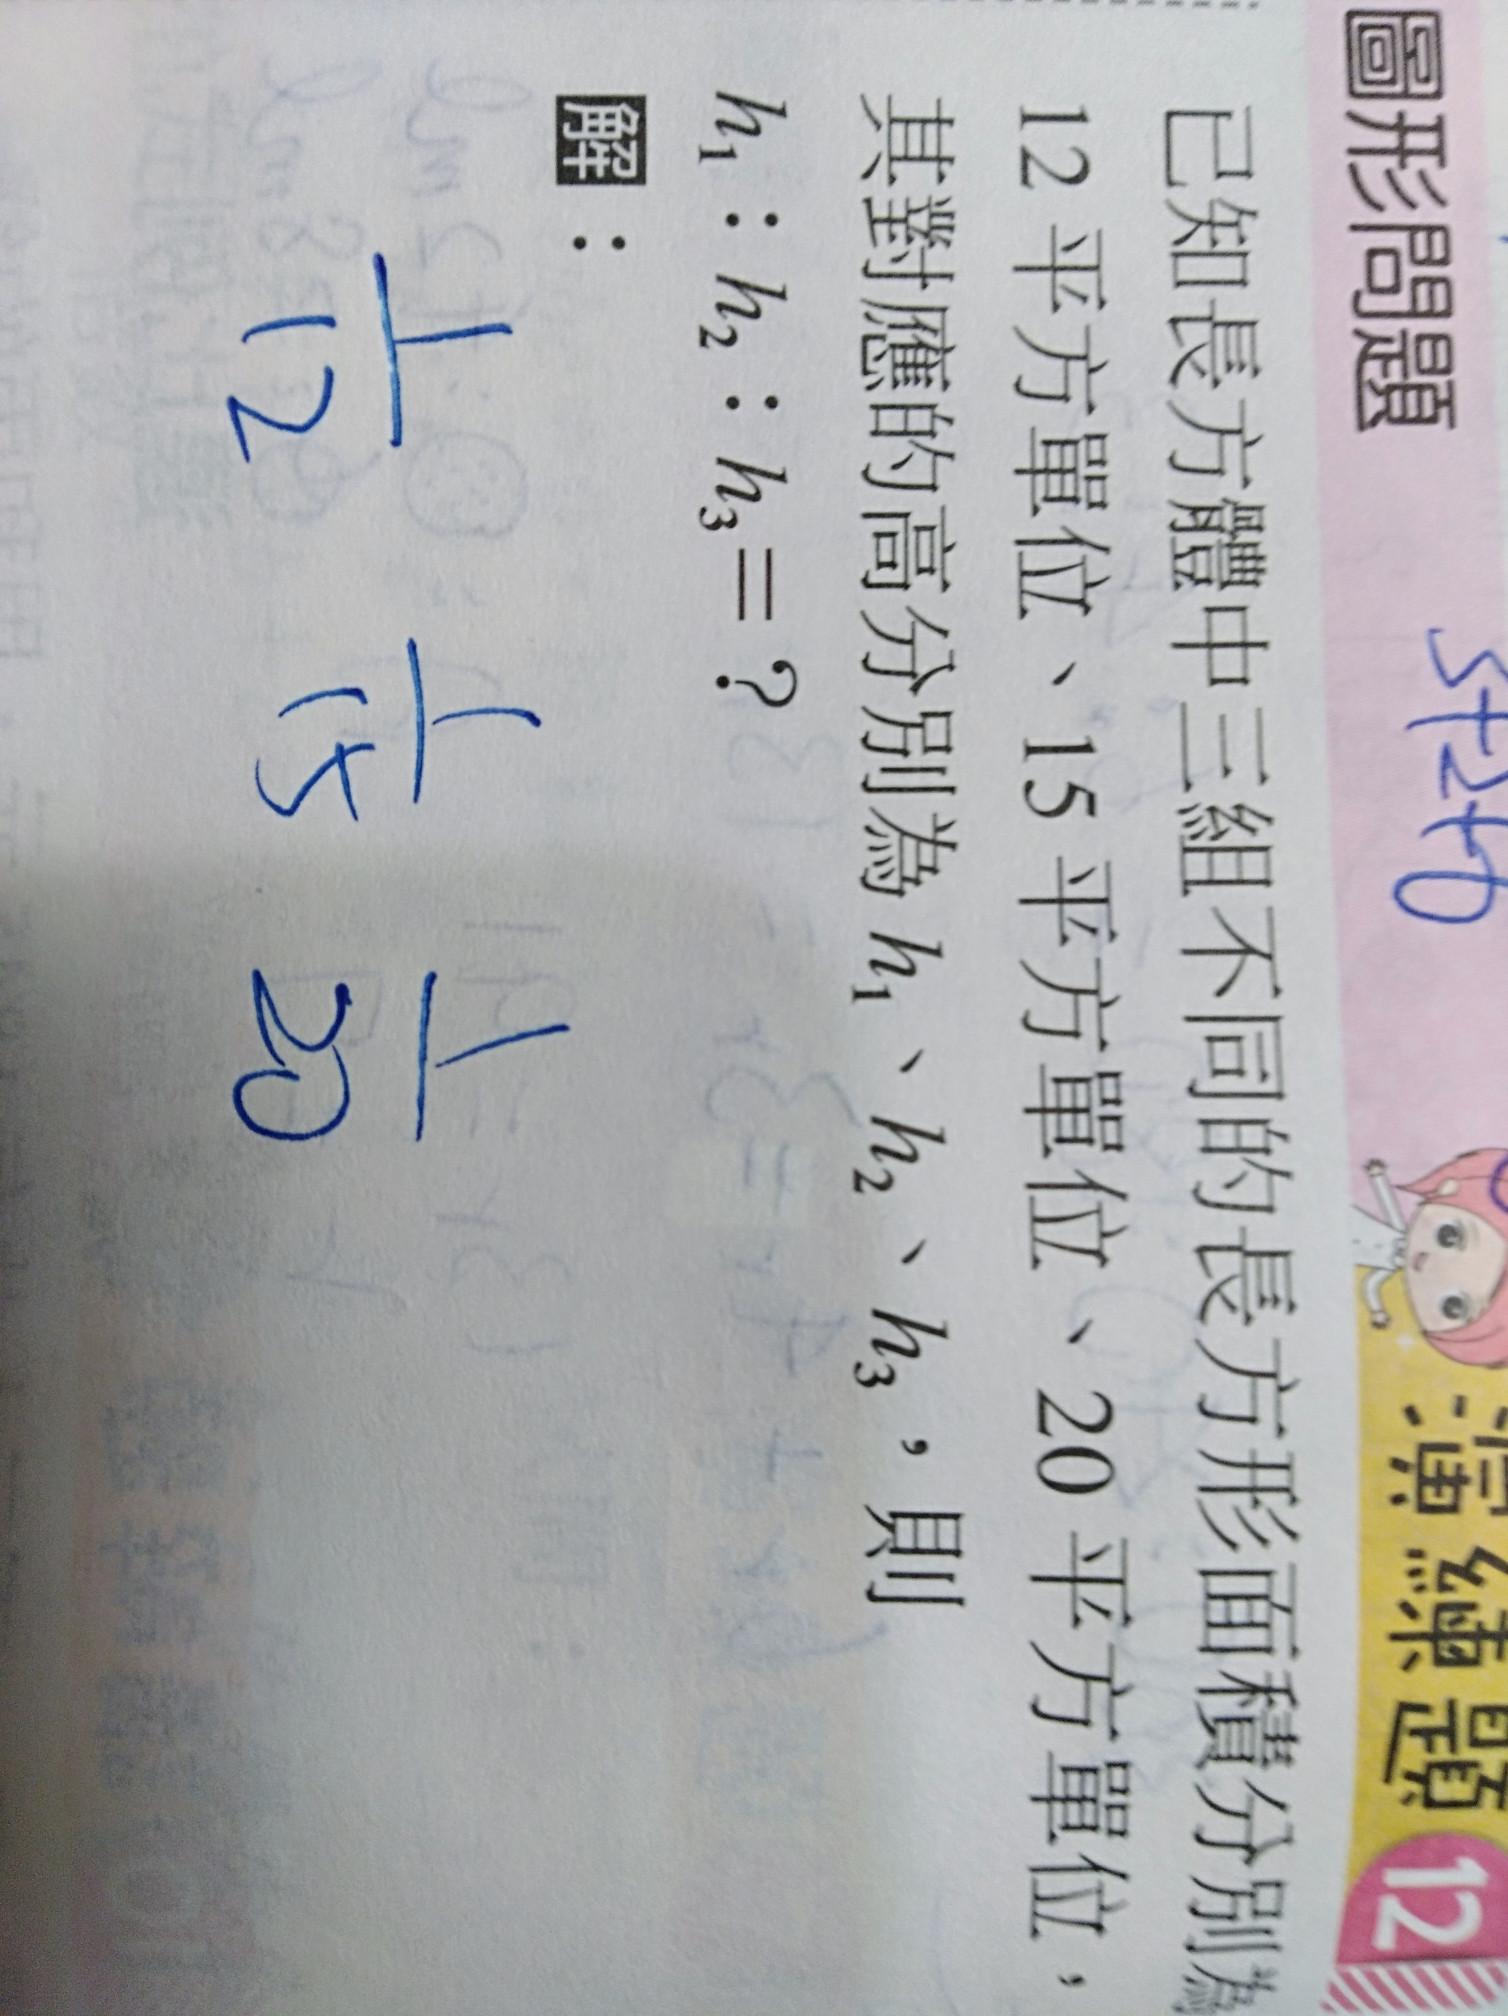 圖形問題
5+2+0
演練題 12
已知長方體中三組不同的長方形面積分別為
12 平方單位、15 平方單位、20 平方單位,
其對應的高分別為 h₁、h₂、h₃,則
h₁:h₂:h₃=?
解:
1/12 1/15 1/20